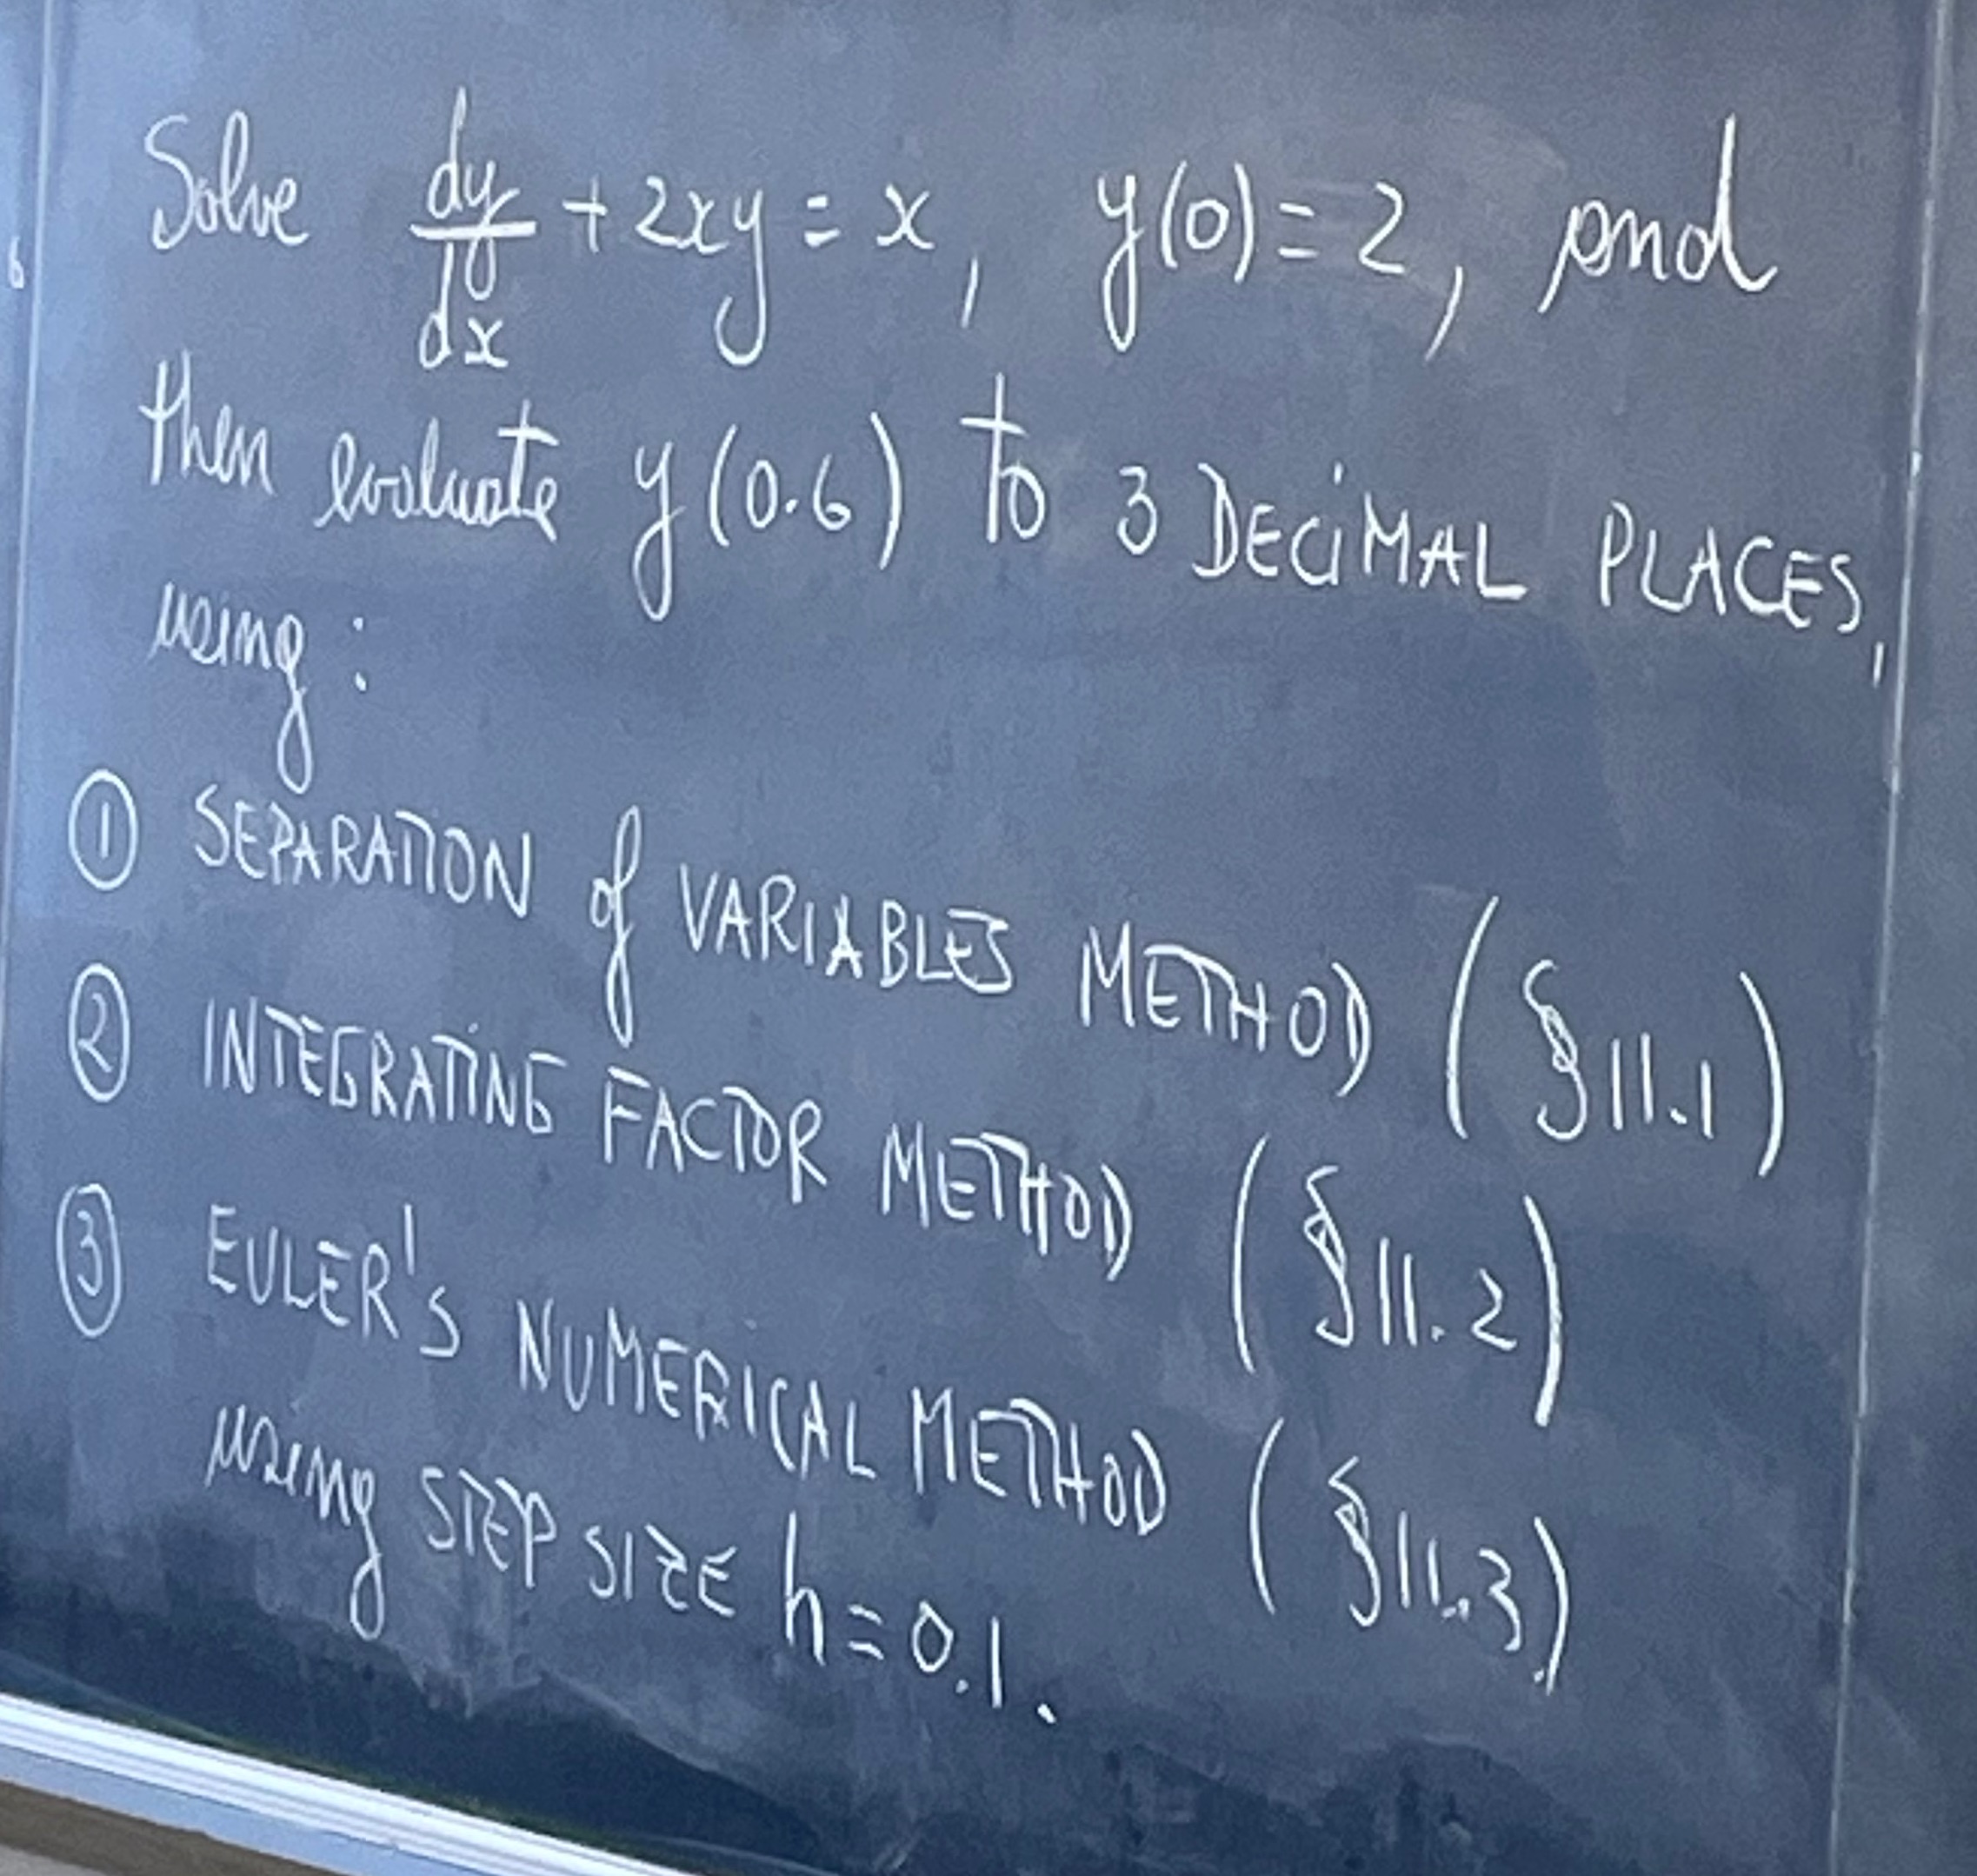 Solve dy/dx + 2xy = x, y(0) = 2, and
then evaluate y(0.6) to 3 DECIMAL PLACES,
using:
① SEPARATION of VARIABLES METHOD (§11.1)
② INTEGRATING FACTOR METHOD (§11.2)
③ EULER'S NUMERICAL METHOD (§11.3)
using STEP SIZE h=0.1.